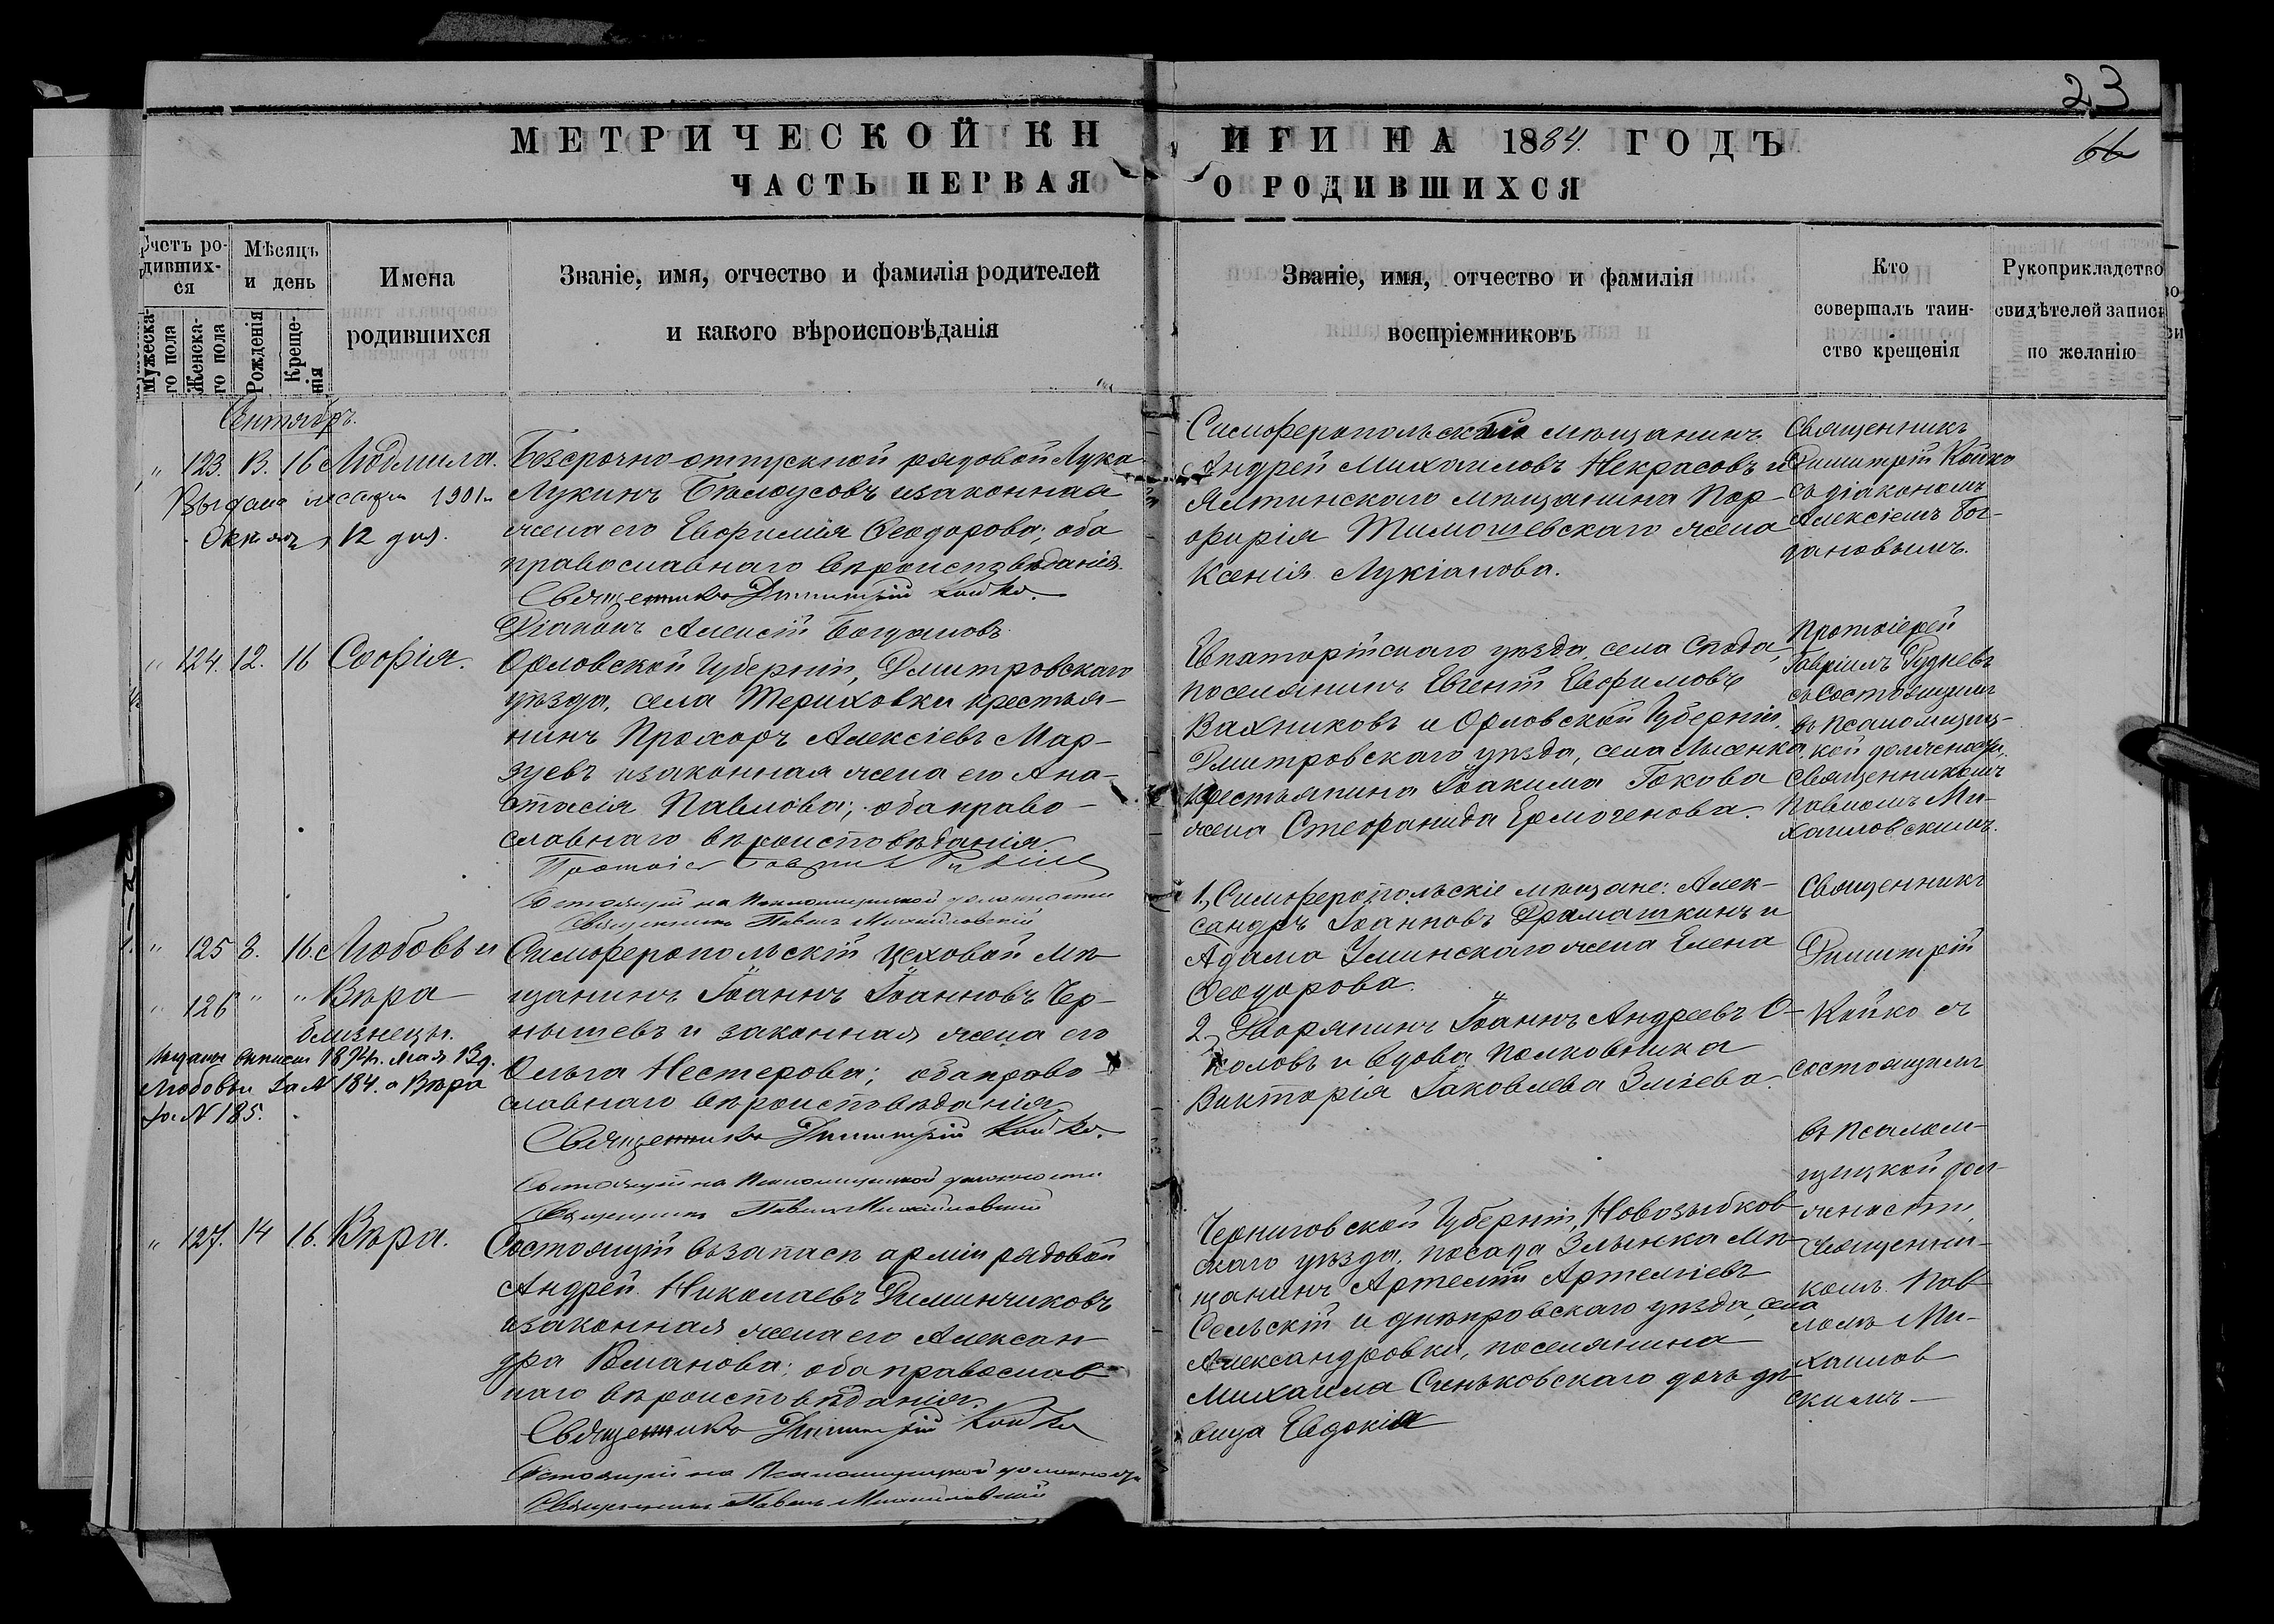 23
МЕТРИЧЕСКОЙ КНИГИ НА 1884. ГОДЪ
66
ЧАСТЬ ПЕРВАЯ О РОДИВШИХСЯ
Счетъ ро-
дивших-
ся
Мужеска-
го пола
Женска-
го пола
Мѣсяцъ
и день
Рожденія
Креще-
нія
Имена
родившихся
Званіе, имя, отчество и фамилія родителей
и какого вѣроисповѣданія
Званіе, имя, отчество и фамилія
воспріемниковъ
Кто
совершалъ таин-
ство крещенія
Рукоприкладство
свидѣтелей записи
по желанію
Сентябрь.
" 123. 13. 16 Людмила.
Выдана 1901
12 дня.
Безсрочно отпускной рядовой Лука
Лукинъ Бѣлоусовъ и законная
жена его Евфимія Ѳеодорова; оба
православнаго вѣроисповѣданія.
Священникъ Димитрій Койко.
Діаконъ Алексій Богдановъ.
Симферопольскій мѣщанинъ
Андрей Михаиловъ Некрасовъ и
Ялтинскаго мѣщанина Пор-
фирія Тимошевскаго жена
Ксенія Лукіанова.
Священникъ
Димитрій Койко
съ діакономъ
Алексіемъ Бог-
дановымъ.
" 124. 12. 16 Софія.
Орловской Губерніи, Дмитровскаго
уѣзда, села Териховки крестья-
нинъ Прохоръ Алексіевъ Мар-
зуевъ и законная жена его Ана-
стасія Павлова; оба право-
славнаго вѣроисповѣданія.
Состоящій на Псаломщицкой должности
Священникъ Павелъ Михайловскій
Евпаторійскаго уѣзда, села Спада,
поселянинъ Евгеній Евфимовъ
Вахниковъ и Орловской Губерніи,
Дмитровскаго уѣзда, села Лысенка
крестьянина Іоакима Гокова
жена Стефанида Ермогенова.
Протоіерей
Гавріилъ Рудневъ
съ состоящимъ
въ псаломщиц-
кой должности
священникомъ
Павломъ Ми-
хаиловскимъ.
1. " 125 8. 16. Любовь и
" 126 " " Вѣра
близнецы.
Выданы выписи 1894г. Мая 13 д.
Любовь за № 184. а Вѣра
за № 185.
Симферопольскій цеховой мѣ-
щанинъ Іоаннъ Іоанновъ Чер-
нышевъ и законная жена его
Ольга Нестерова; оба право-
славнаго вѣроисповѣданія.
Священникъ Димитрій Койко.
Состоящій на Псаломщицкой должности
Священникъ Павелъ Михайловскій
1, Симферопольскіе мѣщане: Алек-
сандръ Іоанновъ Драмашкинъ и
Адама Уминскаго жена Елена
Ѳеодорова.
2, Дворянинъ Іоаннъ Андреевъ О-
коловъ и вдова полковника
Викторія Іаковлева Зміева.
Священникъ
Димитрій
Койко съ
состоящимъ
въ псалом-
щицкой дол-
жности
священни-
комъ Пав-
ломъ Ми-
хаилов
скимъ
" 127. 14 16. Вѣра.
Состоящій въ запасѣ арміи рядовой
Андрей Николаевъ Диминчиковъ
и законная жена его Алексан-
дра Романова; оба православ
наго вѣроисповѣданія.
Священникъ Димитрій Койко
Состоящій на Псаломщицкой должности
Священникъ Павелъ Михайловскій
Черниговской Губерніи, Новозыбков
скаго уѣзда, посада Злынка мѣ-
щанинъ Артемій Артеміевъ
Сельскій и днѣпровскаго уѣзда, села
Александровки, поселянина
Михаила Сеньковскаго дочь дѣ-
вица Евдокія